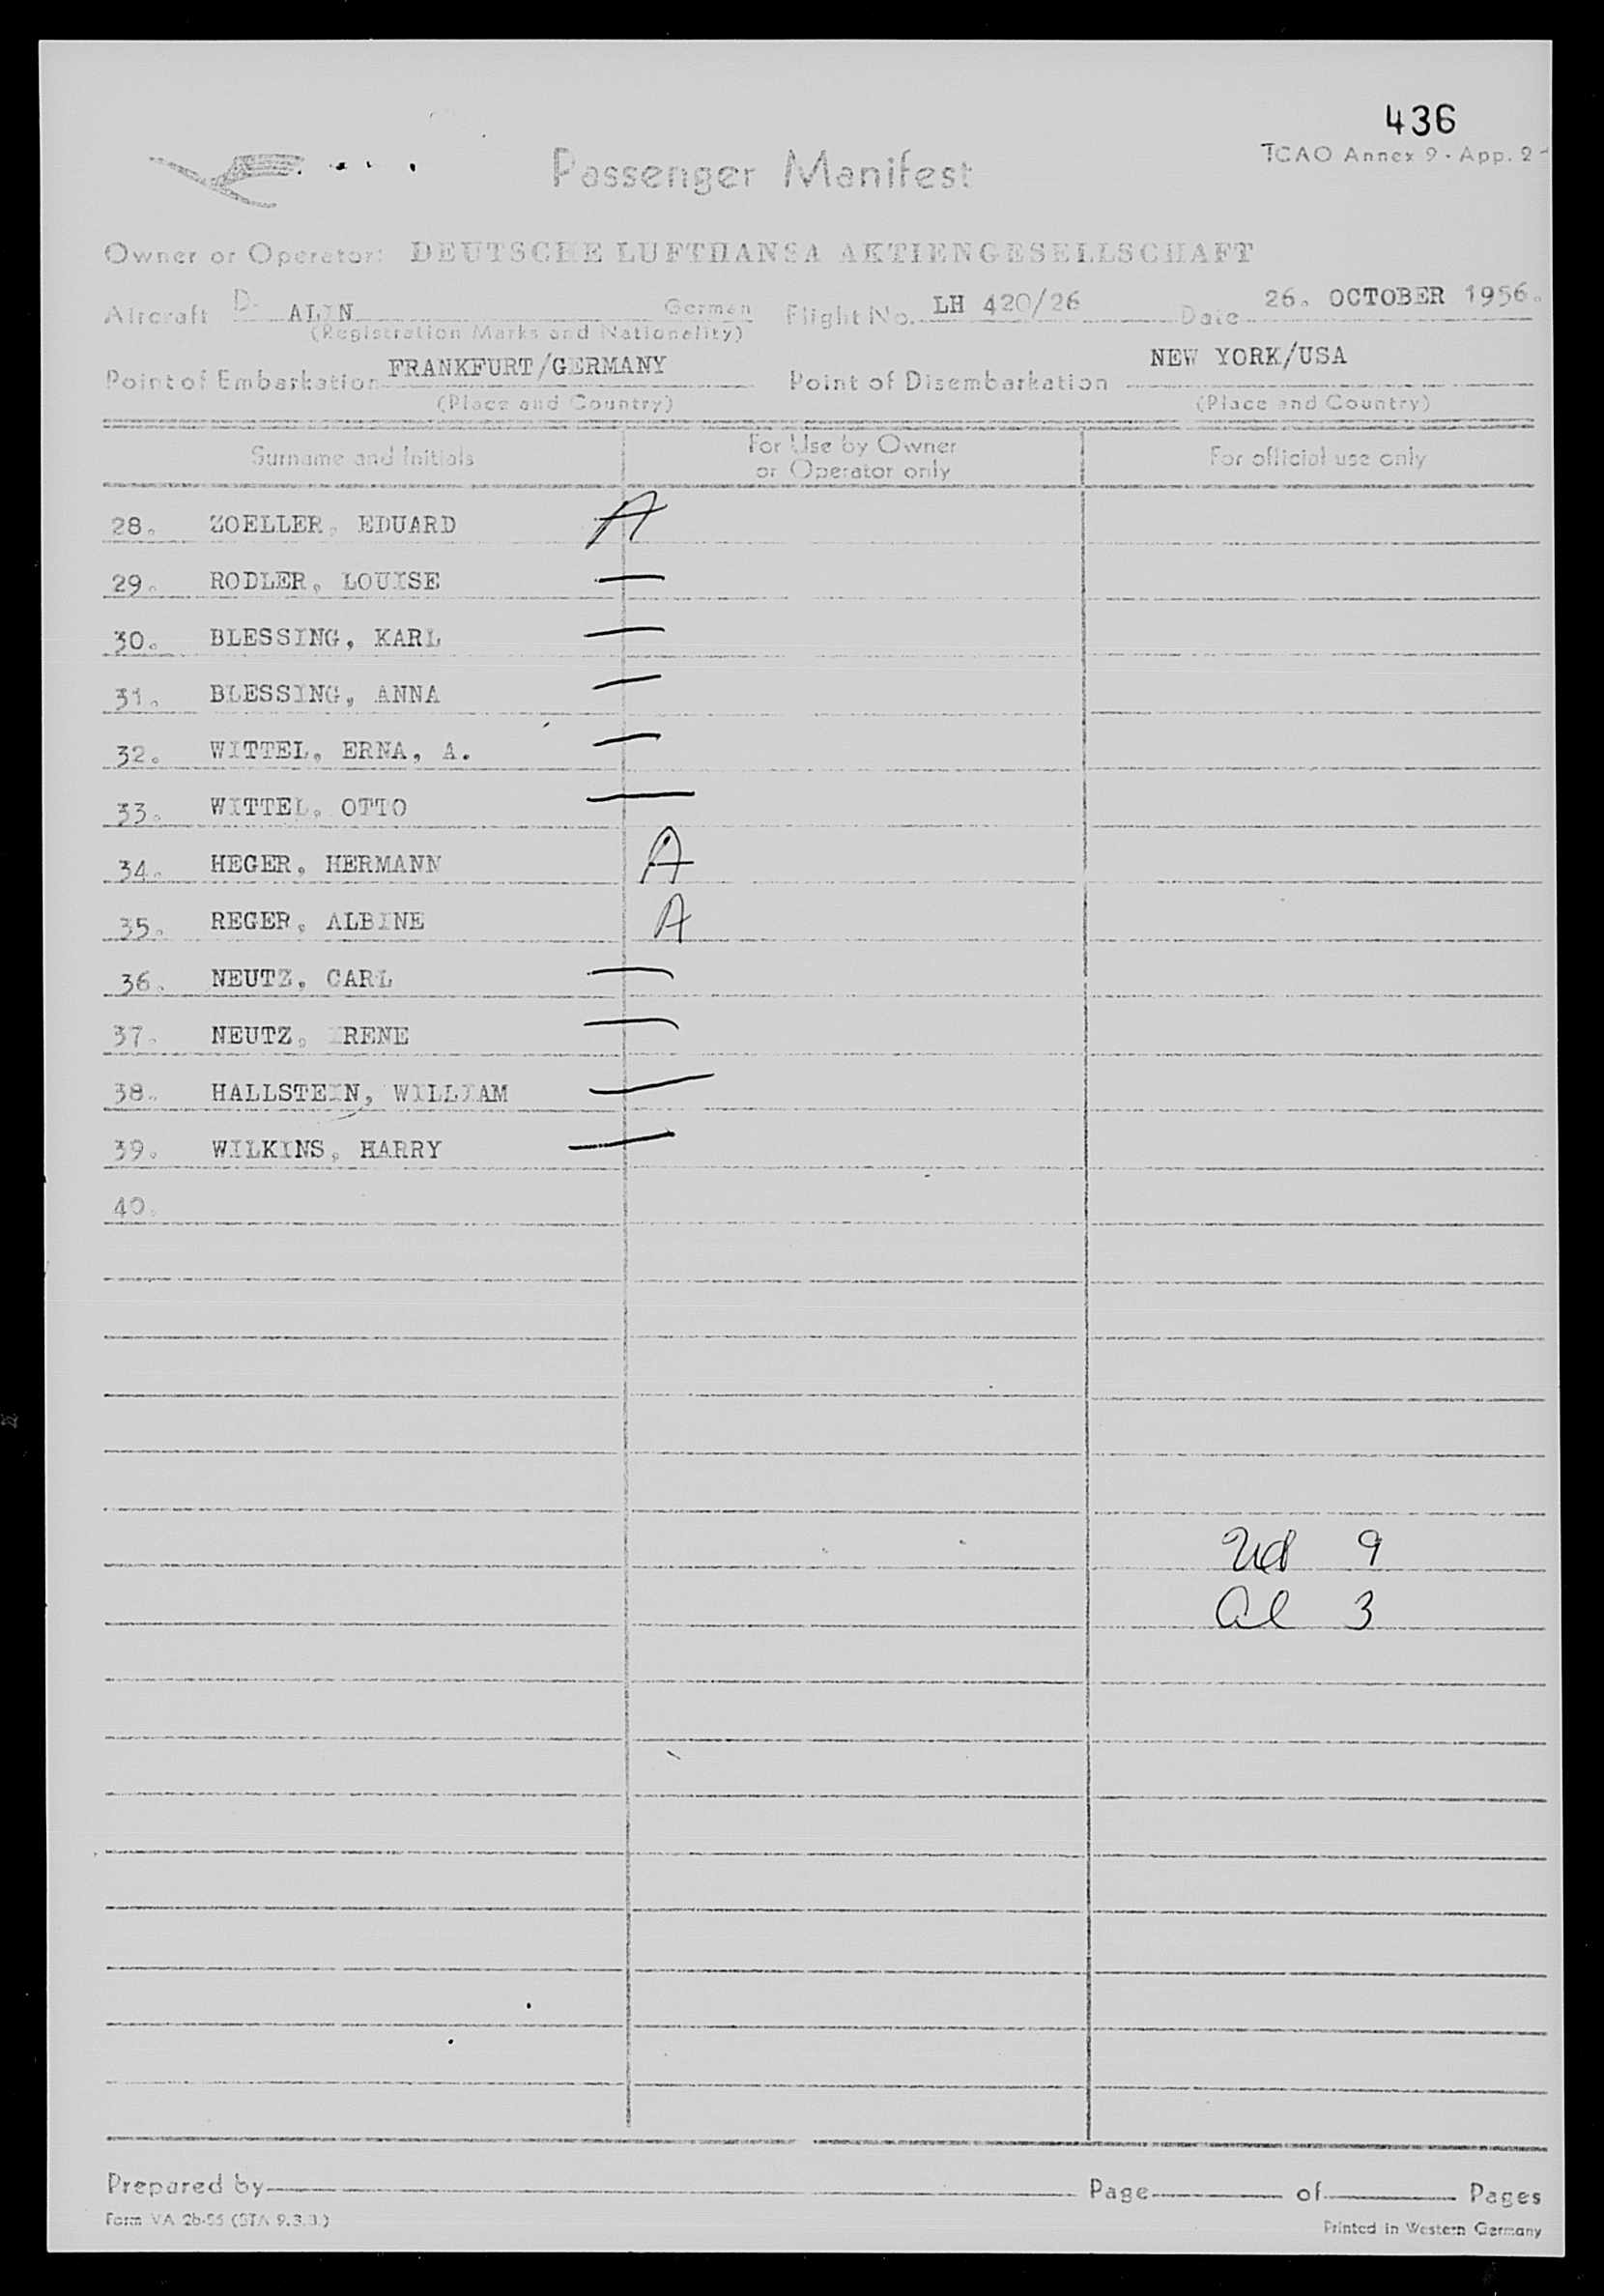 436
ICAO Annex 9 - App. 2 -
Passenger Manifest
Owner or Operator: DEUTSCHE LUFTHANSA AKTIENGESELLSCHAFT
Aircraft D- ALIN German Flight No. LH 420/26 Date 26. OCTOBER 1956.
(Registration Marks and Nationality)
Point of Embarkation FRANKFURT/GERMANY Point of Disembarkation NEW YORK/USA
(Place and Country) (Place and Country)
Surname and Initials For Use by Owner or Operator only For official use only
28. ZOELLER, EDUARD A
29. RODLER, LOUISE —
30. BLESSING, KARL —
31. BLESSING, ANNA —
32. WITTEL, ERNA, A. —
33. WITTEL, OTTO —
34. HEGER, HERMANN A
35. REGER, ALBINE A
36. NEUTZ, CARL —
37. NEUTZ, IRENE —
38. HALLSTEIN, WILLIAM —
39. WILKINS, HARRY —
40.
9
Al 3
Prepared by Page of Pages
Form VA 2b-55 (STA 9.3.3.)
Printed in Western Germany